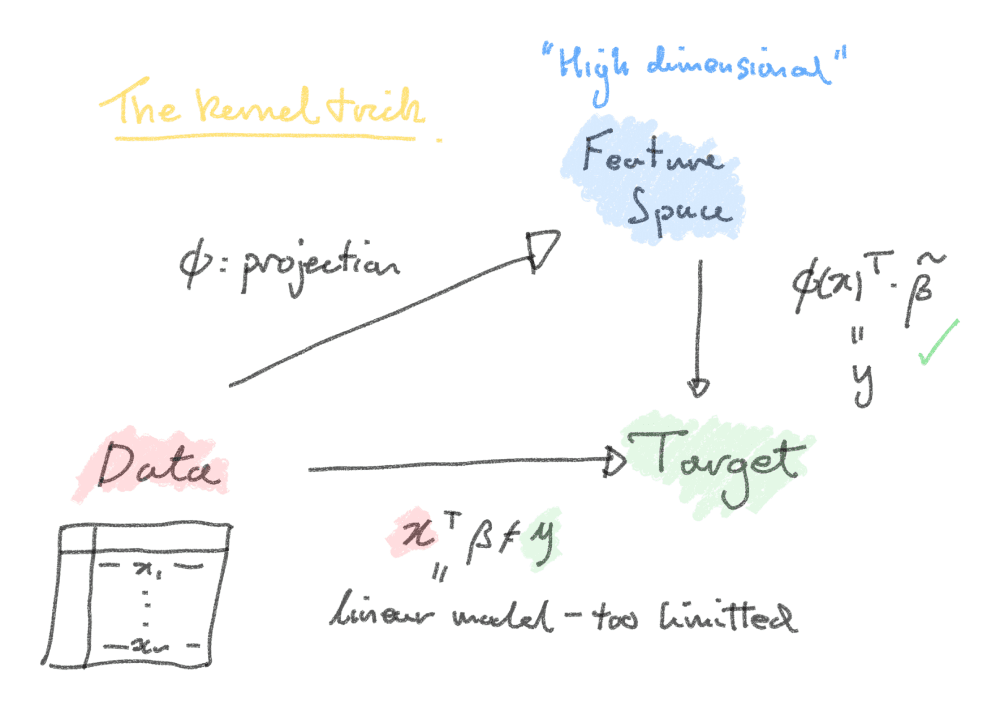 "High dimensional"
The kernel trick.
Feature
Space
ϕ: projection
ϕ(x)ᵀ · β̃
=
y ✓
Data
Target
xᵀβ ≠ y
=
linear model - too limitted
— x₁ —
⋮
— xₙ —